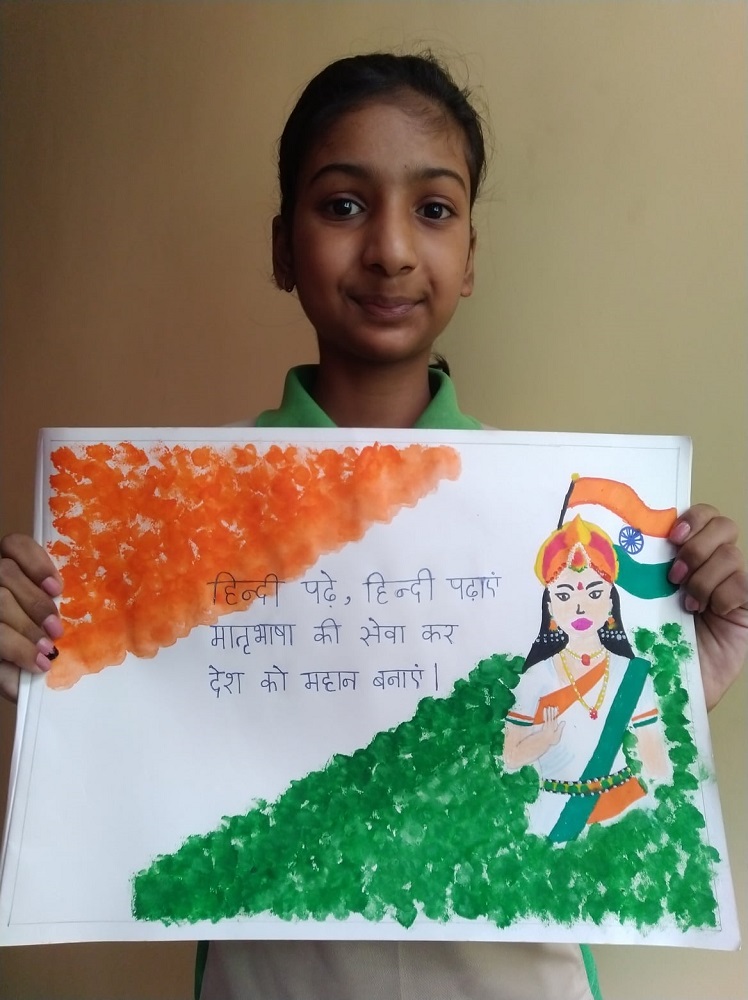 हिन्दी पढ़े, हिन्दी पढ़ाएं
मातृभाषा की सेवा कर
देश को महान बनाएं।